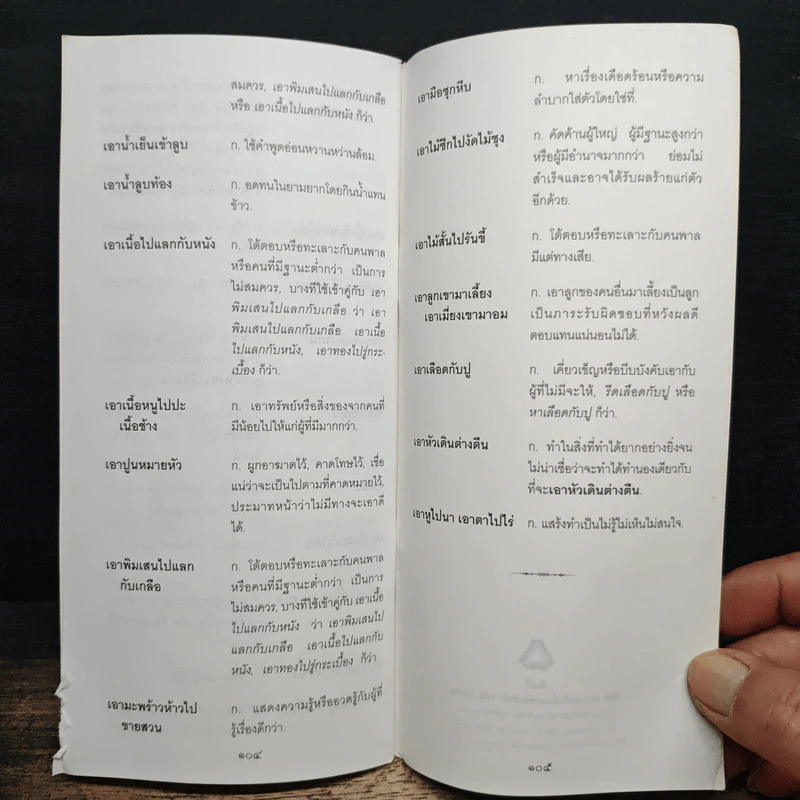 สมควร, เอาพิมเสนไปแลกกับเกลือ
หรือ เอาเนื้อไปแลกกับหนัง ก็ว่า.
เอาน้ำเย็นเข้าลูบ ก. ใช้คำพูดอ่อนหวานหว่านล้อม.
เอาน้ำลูบท้อง ก. อดทนในยามยากโดยกินน้ำแทน
ข้าว.
เอาเนื้อไปแลกกับหนัง ก. โต้ตอบหรือทะเลาะกับคนพาล
หรือคนที่มีฐานะต่ำกว่า เป็นการ
ไม่สมควร, บางทีใช้เข้าคู่กับ เอา
พิมเสนไปแลกกับเกลือ ว่า เอา
พิมเสนไปแลกกับเกลือ เอาเนื้อ
ไปแลกกับหนัง, เอาทองไปรู่กระ-
เบื้อง ก็ว่า.
เอาเนื้อหนูไปปะ ก. เอาทรัพย์หรือสิ่งของจากคนที่
เนื้อช้าง มีน้อยไปให้แก่ผู้ที่มีมากกว่า.
เอาปูนหมายหัว ก. ผูกอาฆาตไว้, คาดโทษไว้, เชื่อ
แน่ว่าจะเป็นไปตามที่คาดหมายไว้,
ประมาทหน้าว่าไม่มีทางจะเอาดี
ได้.
เอาพิมเสนไปแลก ก. โต้ตอบหรือทะเลาะกับคนพาล
กับเกลือ หรือคนที่มีฐานะต่ำกว่า เป็นการ
ไม่สมควร, บางทีใช้เข้าคู่กับ เอาเนื้อ
ไปแลกกับหนัง ว่า เอาพิมเสนไป
แลกกับเกลือ เอาเนื้อไปแลกกับ
หนัง, เอาทองไปรู่กระเบื้อง ก็ว่า.
เอามะพร้าวห้าวไป ก. แสดงความรู้หรืออวดรู้กับผู้ที่
ขายสวน รู้เรื่องดีกว่า.
๑๐๔
เอามือซุกหีบ ก. หาเรื่องเดือดร้อนหรือความ
ลำบากใส่ตัวโดยใช่ที่.
เอาไม้ซีกไปงัดไม้ซุง ก. คัดค้านผู้ใหญ่ ผู้มีฐานะสูงกว่า
หรือผู้มีอำนาจมากกว่า ย่อมไม่
สำเร็จและอาจได้รับผลร้ายแก่ตัว
อีกด้วย.
เอาไม้สั้นไปรันขี้ ก. โต้ตอบหรือทะเลาะกับคนพาล
มีแต่ทางเสีย.
เอาลูกเขามาเลี้ยง ก. เอาลูกของคนอื่นมาเลี้ยงเป็นลูก
เอาเมี่ยงเขามาอม เป็นภาระรับผิดชอบที่หวังผลดี
ตอบแทนแน่นอนไม่ได้.
เอาเลือดกับปู ก. เคี่ยวเข็ญหรือบีบบังคับเอากับ
ผู้ที่ไม่มีจะให้, รีดเลือดกับปู หรือ
หาเลือดกับปู ก็ว่า.
เอาหัวเดินต่างตีน ก. ทำในสิ่งที่ทำได้ยากอย่างยิ่งจน
ไม่น่าเชื่อว่าจะทำได้ทำนองเดียวกับ
ที่จะเอาหัวเดินต่างตีน.
เอาหูไปนา เอาตาไปไร่ ก. แสร้งทำเป็นไม่รู้ไม่เห็นไม่สนใจ.
๑๐๕